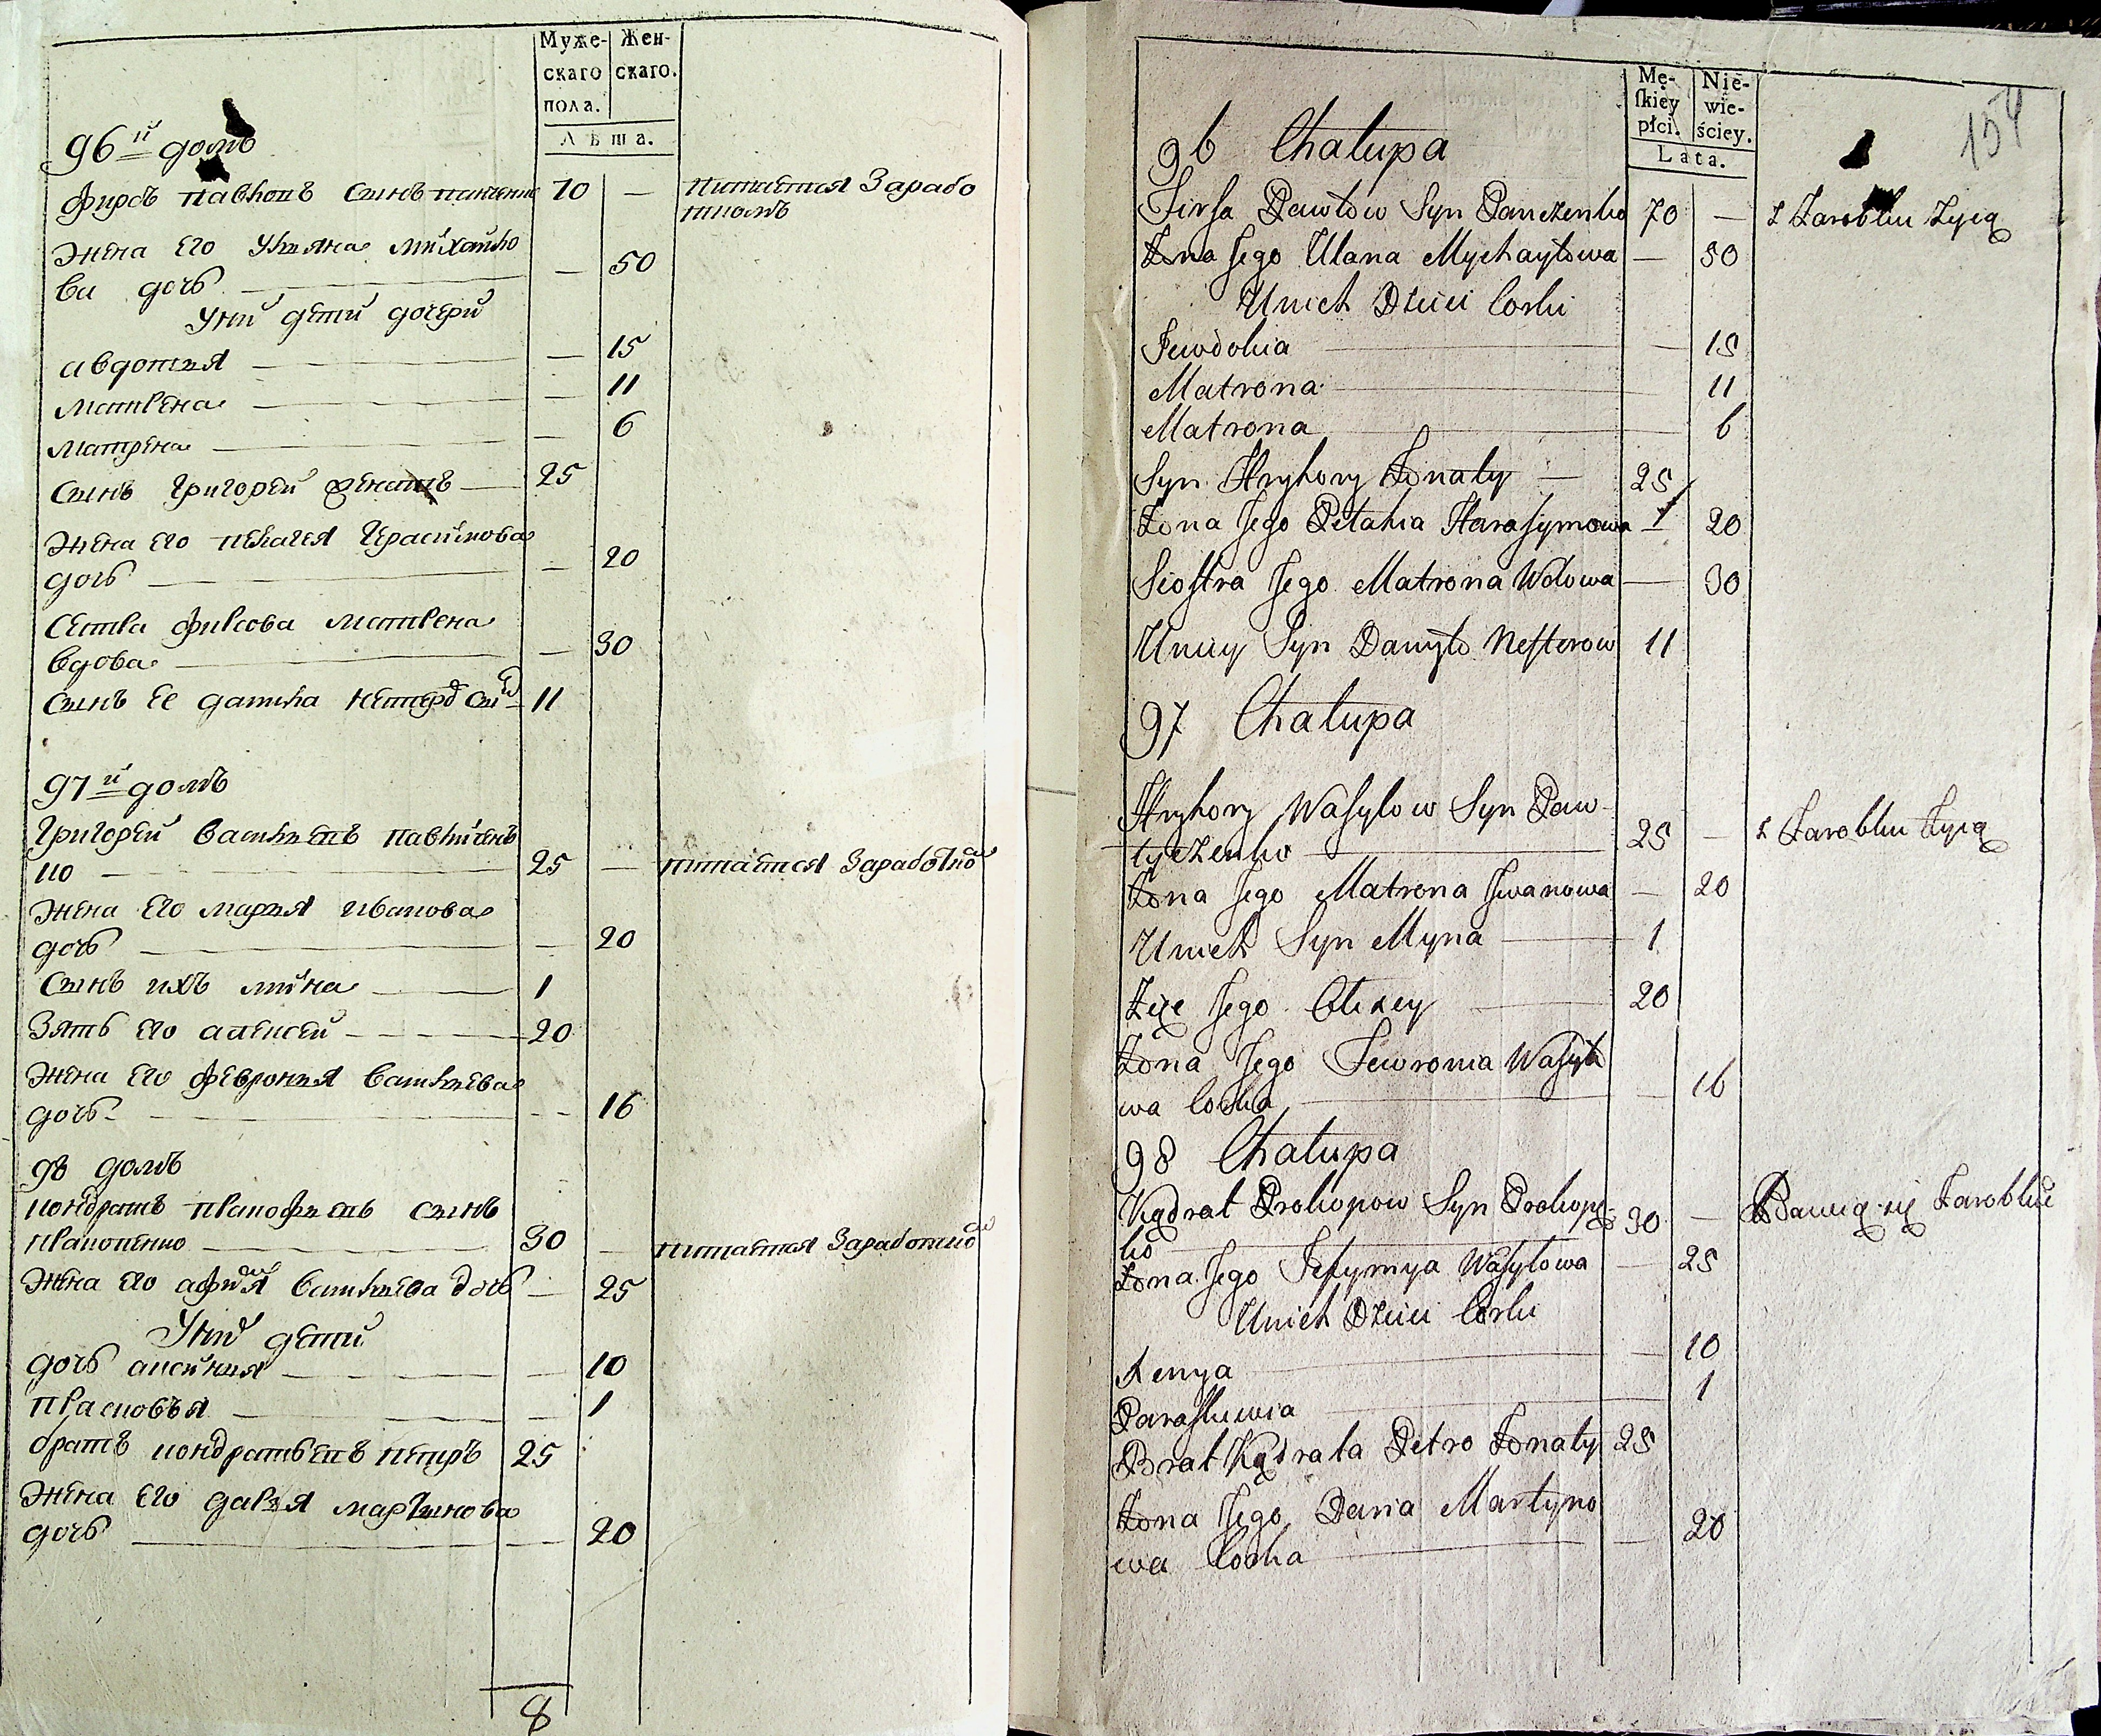 Муже-
скаго
пола.
Жен-
скаго.
Лѣта.
96й домъ
фирсъ павловъ сынъ 70 — питается Зарабо
ткомъ
жена его Ульяна михайло
ва дочь — 50
У них дети дочери
авдотья — 15
матрена — 11
матрена — 6
Сынъ Григорей женатъ — 25
жена его пелагея Герасимова
дочь — 20
Сестра фирсова матрена
вдова — 30
сынъ ее данила 11
97й домъ
Григорей васильевъ павличен
ко — 25 — питается Заработко
жена его марья иванова
дочь — 20
сынъ ихъ мина — 1
Зять его алексей — 20
жена его февронья васильева
дочь — 16
98 домъ
кондратъ прокофьевъ сынъ
прокопенко — 30 — питается Заработко
жена его васильева дочь — 25
У них дети
дочь аксинья — 10
прасковья — 1
братъ кондратьевъ петръ 25
жена его дарья мартинова
дочь — 20
8
Mę-
ſkiey
płci.
Nie-
wie-
ściey.
Lata.
154
96 Chalupa
Firsa Pawłow Syn Panczenko 70 — z Zarobku Zyią
Zona Jego Ulana Mychayłowa — 50
Unich Dzieci Corki
Fewdokia — 15
Matrona — 11
Matrona 6
Syn Hryhory Zonaty — 25
Zona Jego Pelahia Harasymowa — 20
Siostra Jego Matrona Wdowa — 30
Uniey Syn Danyło Nesterow 11
97 Chalupa
Hryhory Wasylow Syn Paw
lyczenko — 25 — z Zarobku Zyią
Zona Jego Matrona Jwanowa — 20
Unich Syn Myna — 1
Zięc Jego Olexey — 20
Zona Jego Fewronia Wasyło
wa Corka — 16
98 Chalupa
Kądrat Prokopow Syn Prokope-
ko 30 — Bawią się Zarobkie
Zona Jego Jefymya Wasylowa — 25
Unich Dzieci Corki
Xenya — 10
Paraskiewia — 1
Brat Kądrata Petro Zonaty 25
Zona Jego Daria Martyno
wa Corka — 20